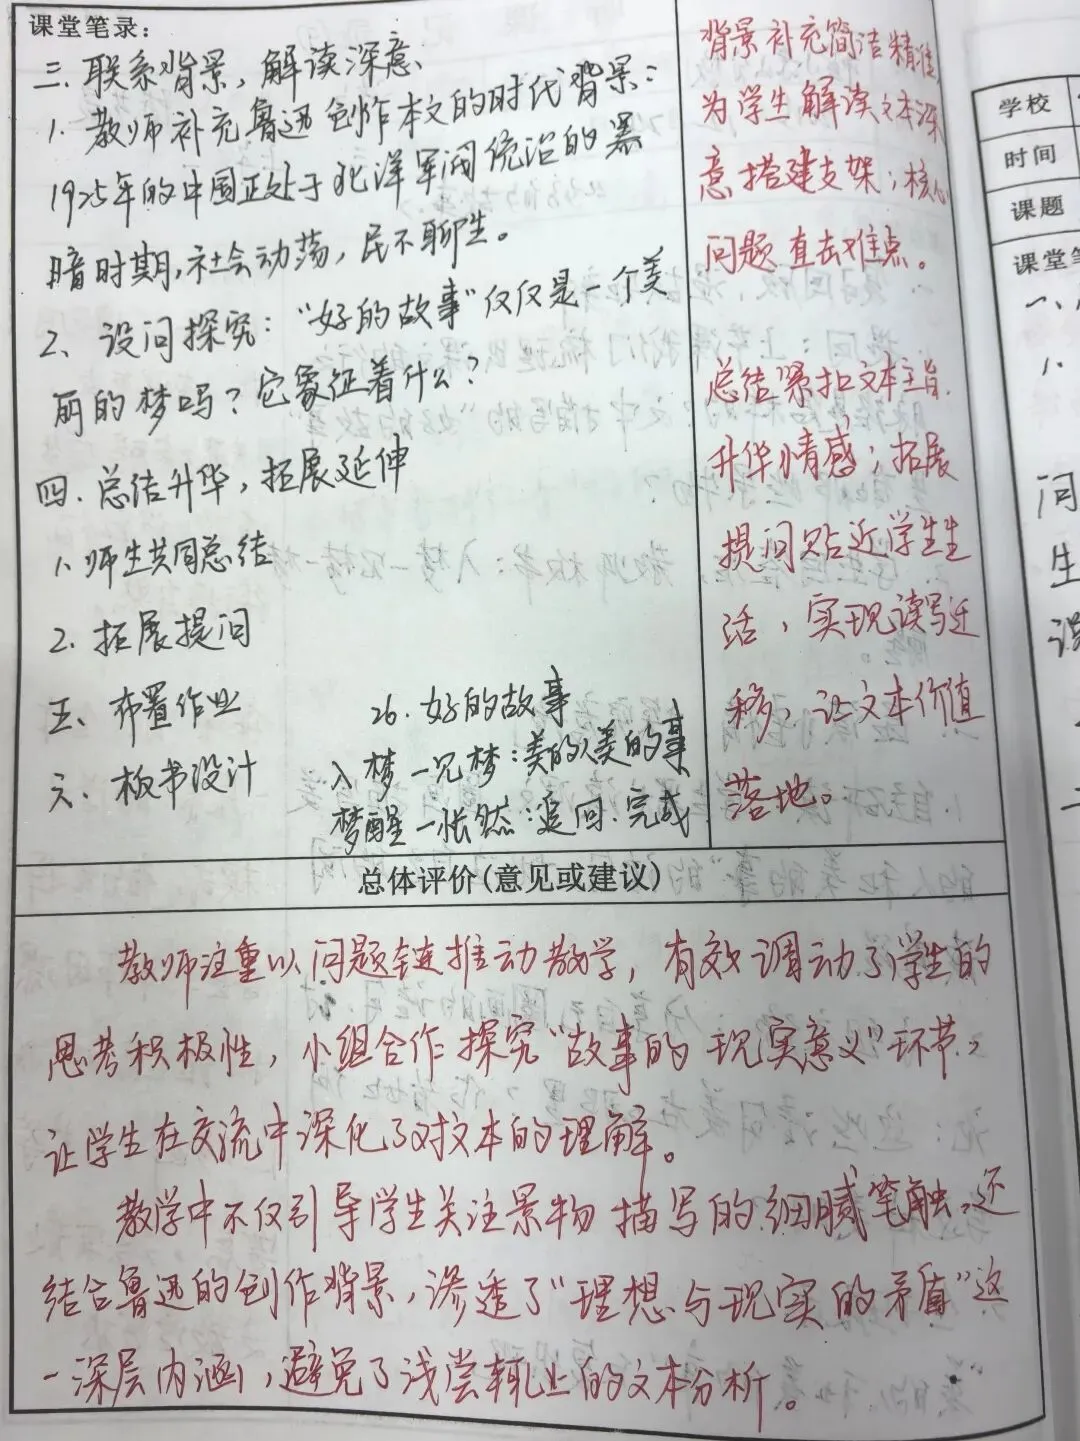 课堂笔录：
三、联系背景，解读深意
1. 教师补充鲁迅创作本文的时代背景：
1925年的中国正处于北洋军阀统治的黑
暗时期，社会动荡，民不聊生。
2、设问探究："好的故事"仅仅是一个美
丽的梦吗？它象征着什么？
四. 总结升华，拓展延伸
1. 师生共同总结
2. 拓展提问
五、布置作业
六、板书设计
26. 好的故事
入梦—见梦：美的人美的事
梦醒—怅然：追回. 完成
背景补充简洁精准
为学生解读文本深
意搭建支架；核心
问题直击难点。
总结紧扣文本主旨.
升华情感；拓展
提问贴近学生生
活，实现读写迁
移，让文本价值
落地。
总体评价(意见或建议)
教师注重以问题链推动教学，有效调动了学生的
思考积极性，小组合作探究"故事的现实意义"环节，
让学生在交流中深化了对文本的理解。
教学中不仅引导学生关注景物描写的细腻笔触，还
结合鲁迅的创作背景，渗透了"理想与现实的矛盾"这
一深层内涵，避免了浅尝辄止的文本分析。
学校
时间
课题
课堂笔
一、
1.
问
生